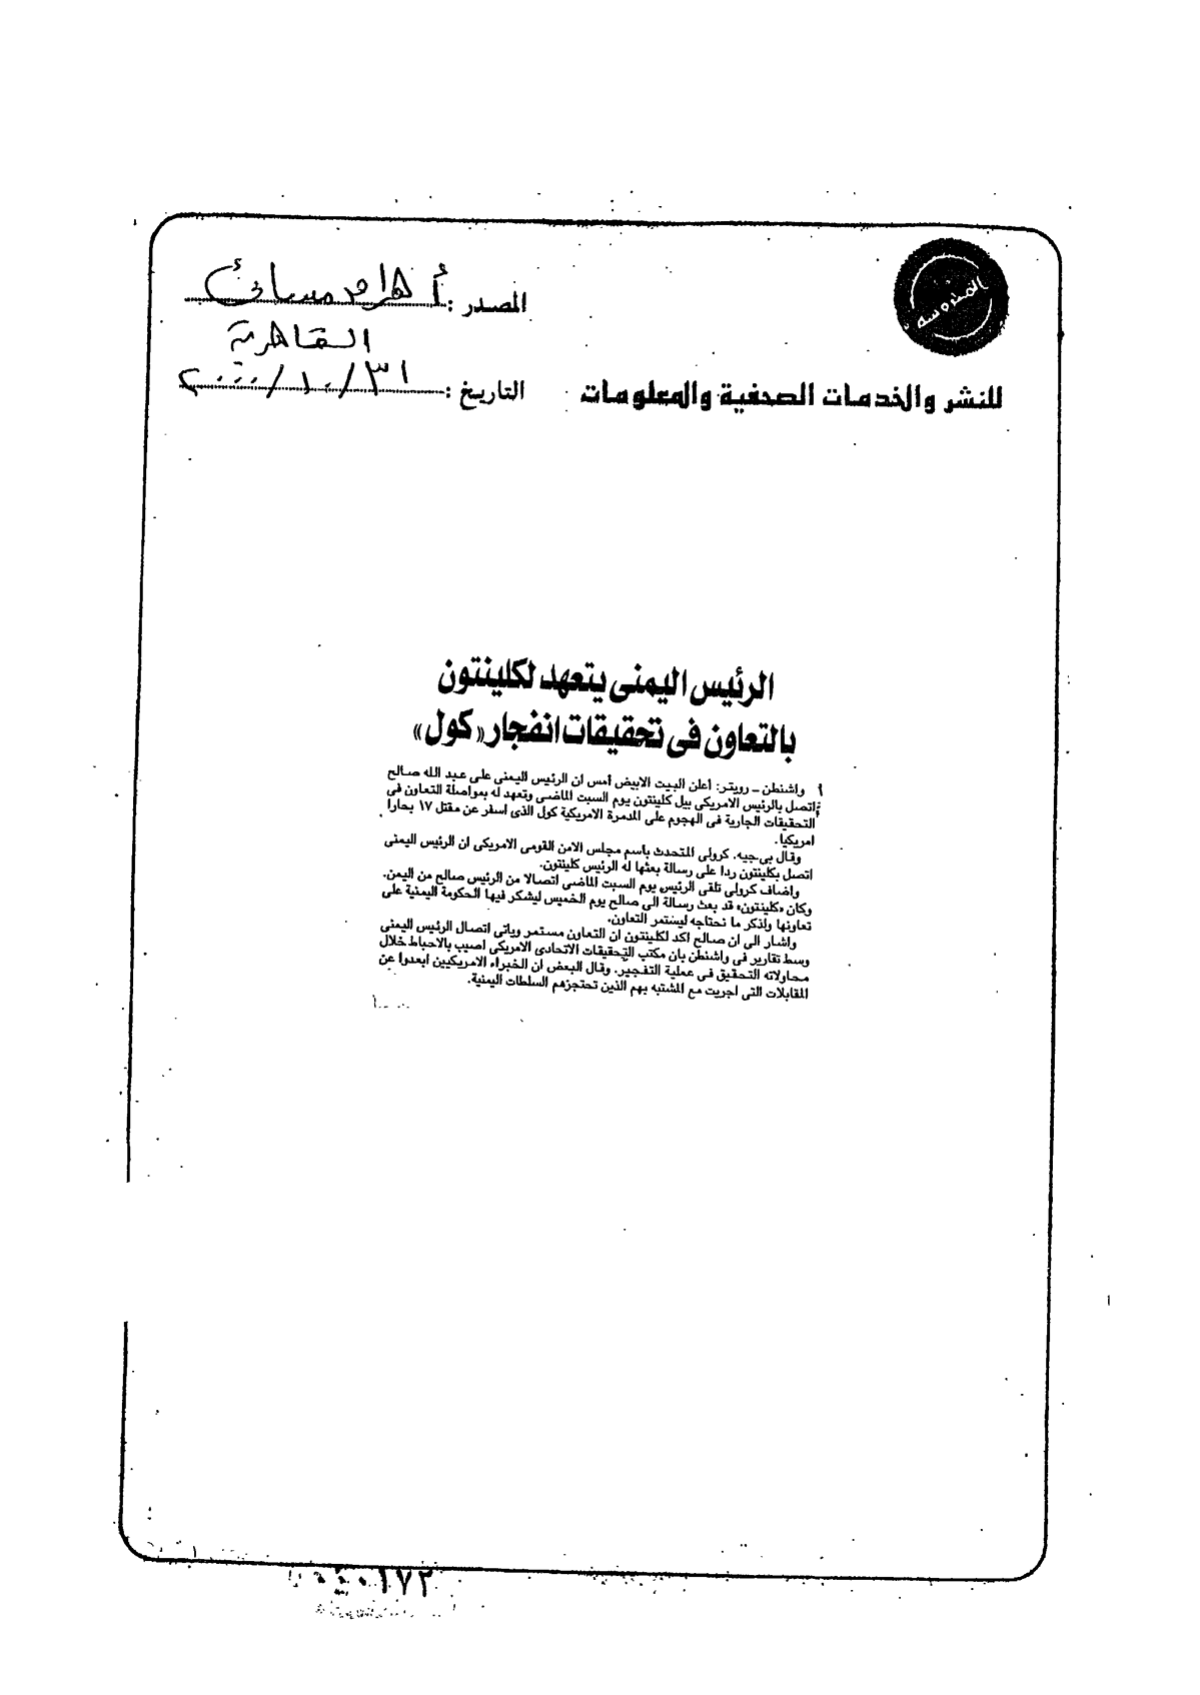 المحروسة
المصدر : أهرام مسائى
القاهرية
للنشر والخدمات الصحفية والمعلومات
التاريخ : ٣١/١٠/٢٠٠٠
الرئيس اليمنى يتعهد لكلينتون
بالتعاون فى تحقيقات انفجار «كول»
واشنطن ـ رويتر: أعلن البيت الابيض أمس ان الرئيس اليمنى على عبد الله صالح
اتصل بالرئيس الامريكى بيل كلينتون يوم السبت الماضى وتعهد له بمواصلة التعاون فى
التحقيقات الجارية فى الهجوم على المدمرة الامريكية كول الذى اسفر عن مقتل ١٧ بحارا
امريكيا.
وقال بى.جيه. كرولى المتحدث باسم مجلس الامن القومى الامريكى ان الرئيس اليمنى
اتصل بكلينتون ردا على رسالة بعثها له الرئيس كلينتون.
واضاف كرولى تلقى الرئيس يوم السبت الماضى اتصالا من الرئيس صالح من اليمن.
وكان «كلينتون» قد بعث رسالة الى صالح يوم الخميس ليشكر فيها الحكومة اليمنية على
تعاونها واذكر ما نحتاجه ليستمر التعاون.
واشار الى ان صالح اكد لكلينتون ان التعاون مستمر وياتى اتصال الرئيس اليمنى
وسط تقارير فى واشنطن بان مكتب التحقيقات الاتحادى الامريكى اصيب بالاحباط خلال
محاولاته التحقيق فى عملية التفجير. وقال البعض ان الخبراء الامريكيين ابعدوا عن
المقابلات التى اجريت مع المشتبه بهم الذين تحتجزهم السلطات اليمنية.